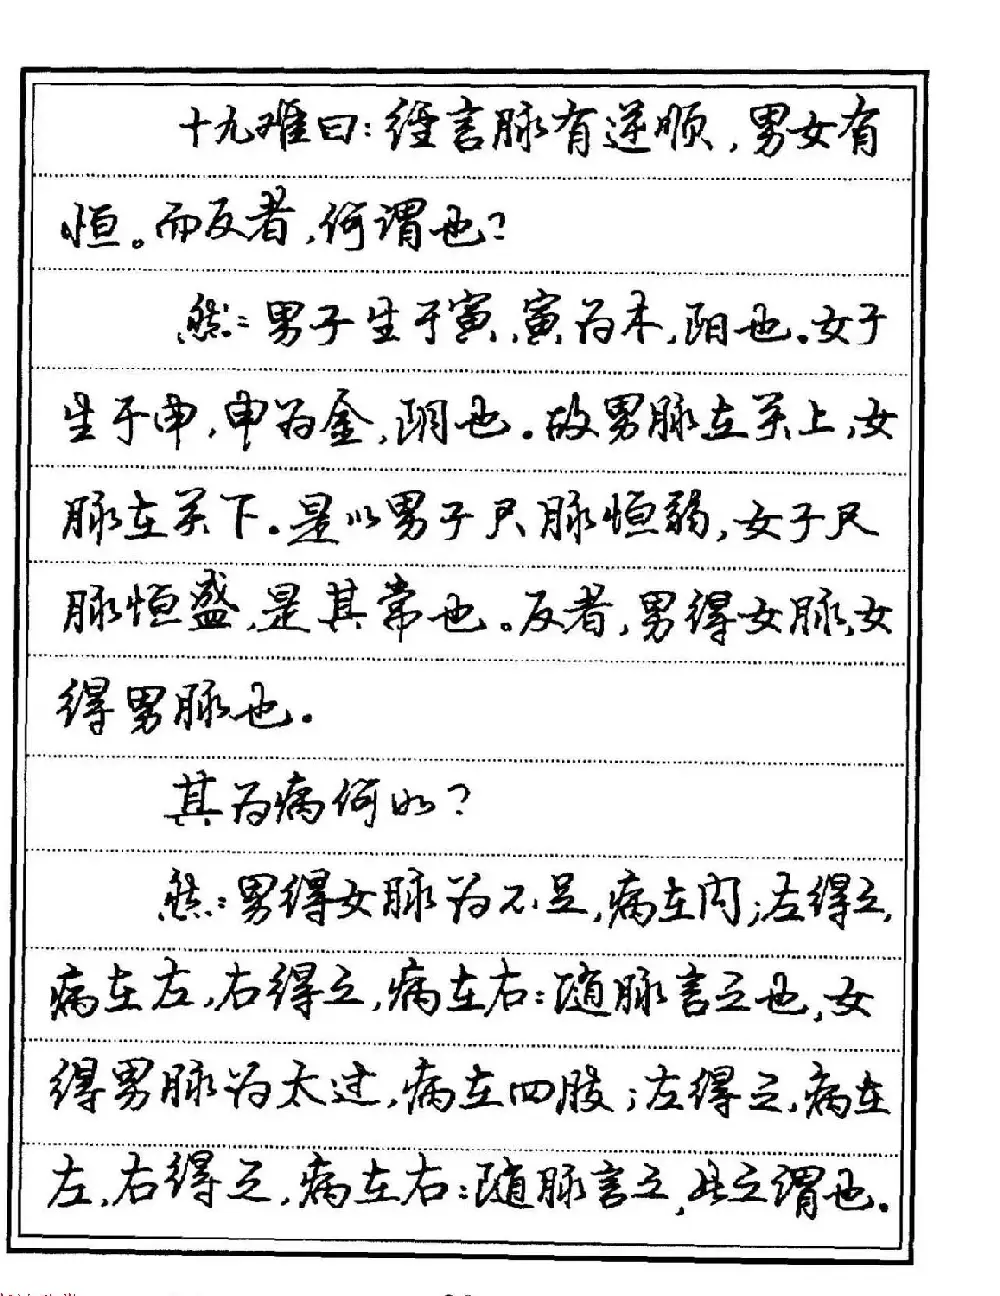 十九难曰：经言脉有逆顺，男女有
恒。而反者，何谓也？
然：男子生于寅，寅为木，阳也。女子
生于申，申为金，阴也。故男脉在关上，女
脉在关下。是以男子尺脉恒弱，女子尺
脉恒盛，是其常也。反者，男得女脉，女
得男脉也。
其为病何如？
然：男得女脉为不足，病在内；左得之，
病在左，右得之，病在右：随脉言之也，女
得男脉为太过，病在四肢；左得之，病在
左，右得之，病在右：随脉言之，此之谓也。